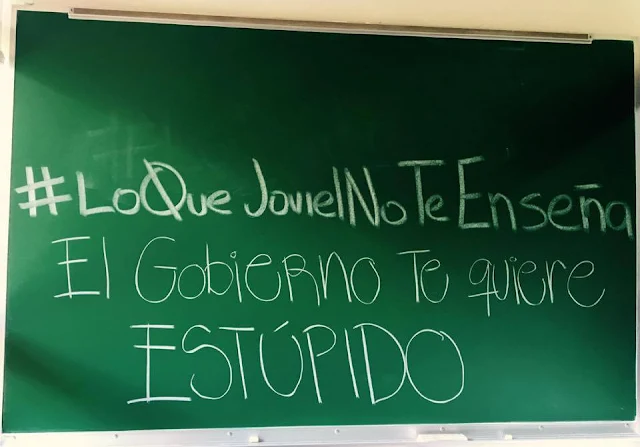 #LoQue JovielNoTeEnseña
El Gobierno Te quiere
ESTÚPIDO